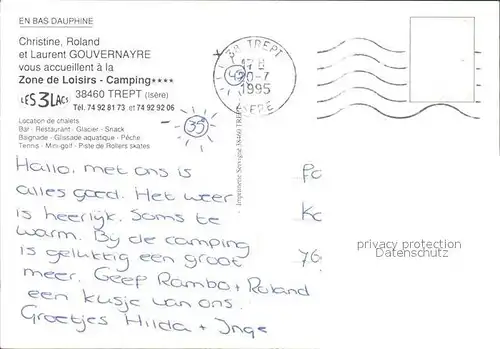 EN BAS DAUPHINE
Christine, Roland
et Laurent GOUVERNAYRE
vous accueillent à la
Zone de Loisirs - Camping****
LES 3 LACS 38460 TREPT (Isère)
Tél. 74 92 81 73 et 74 92 92 06
Location de chalets
Bar - Restaurant - Glacier - Snack
Baignade - Glissade aquatique - Pêche
Tennis - Mini-golf - Piste de Rollers skates
38 TREPT
1995
ISERE
35
Imprimerie Servigné 38460 TREPT
Hallo, met ons is
alles goed. Het weer
is heerlijk. Soms te
warm. Bij de camping
is gelukkig een groot
meer. Geep Rambo + Roland
een kusje van ons.
Groetjes Hilda + Inge
privacy protection
Datenschutz